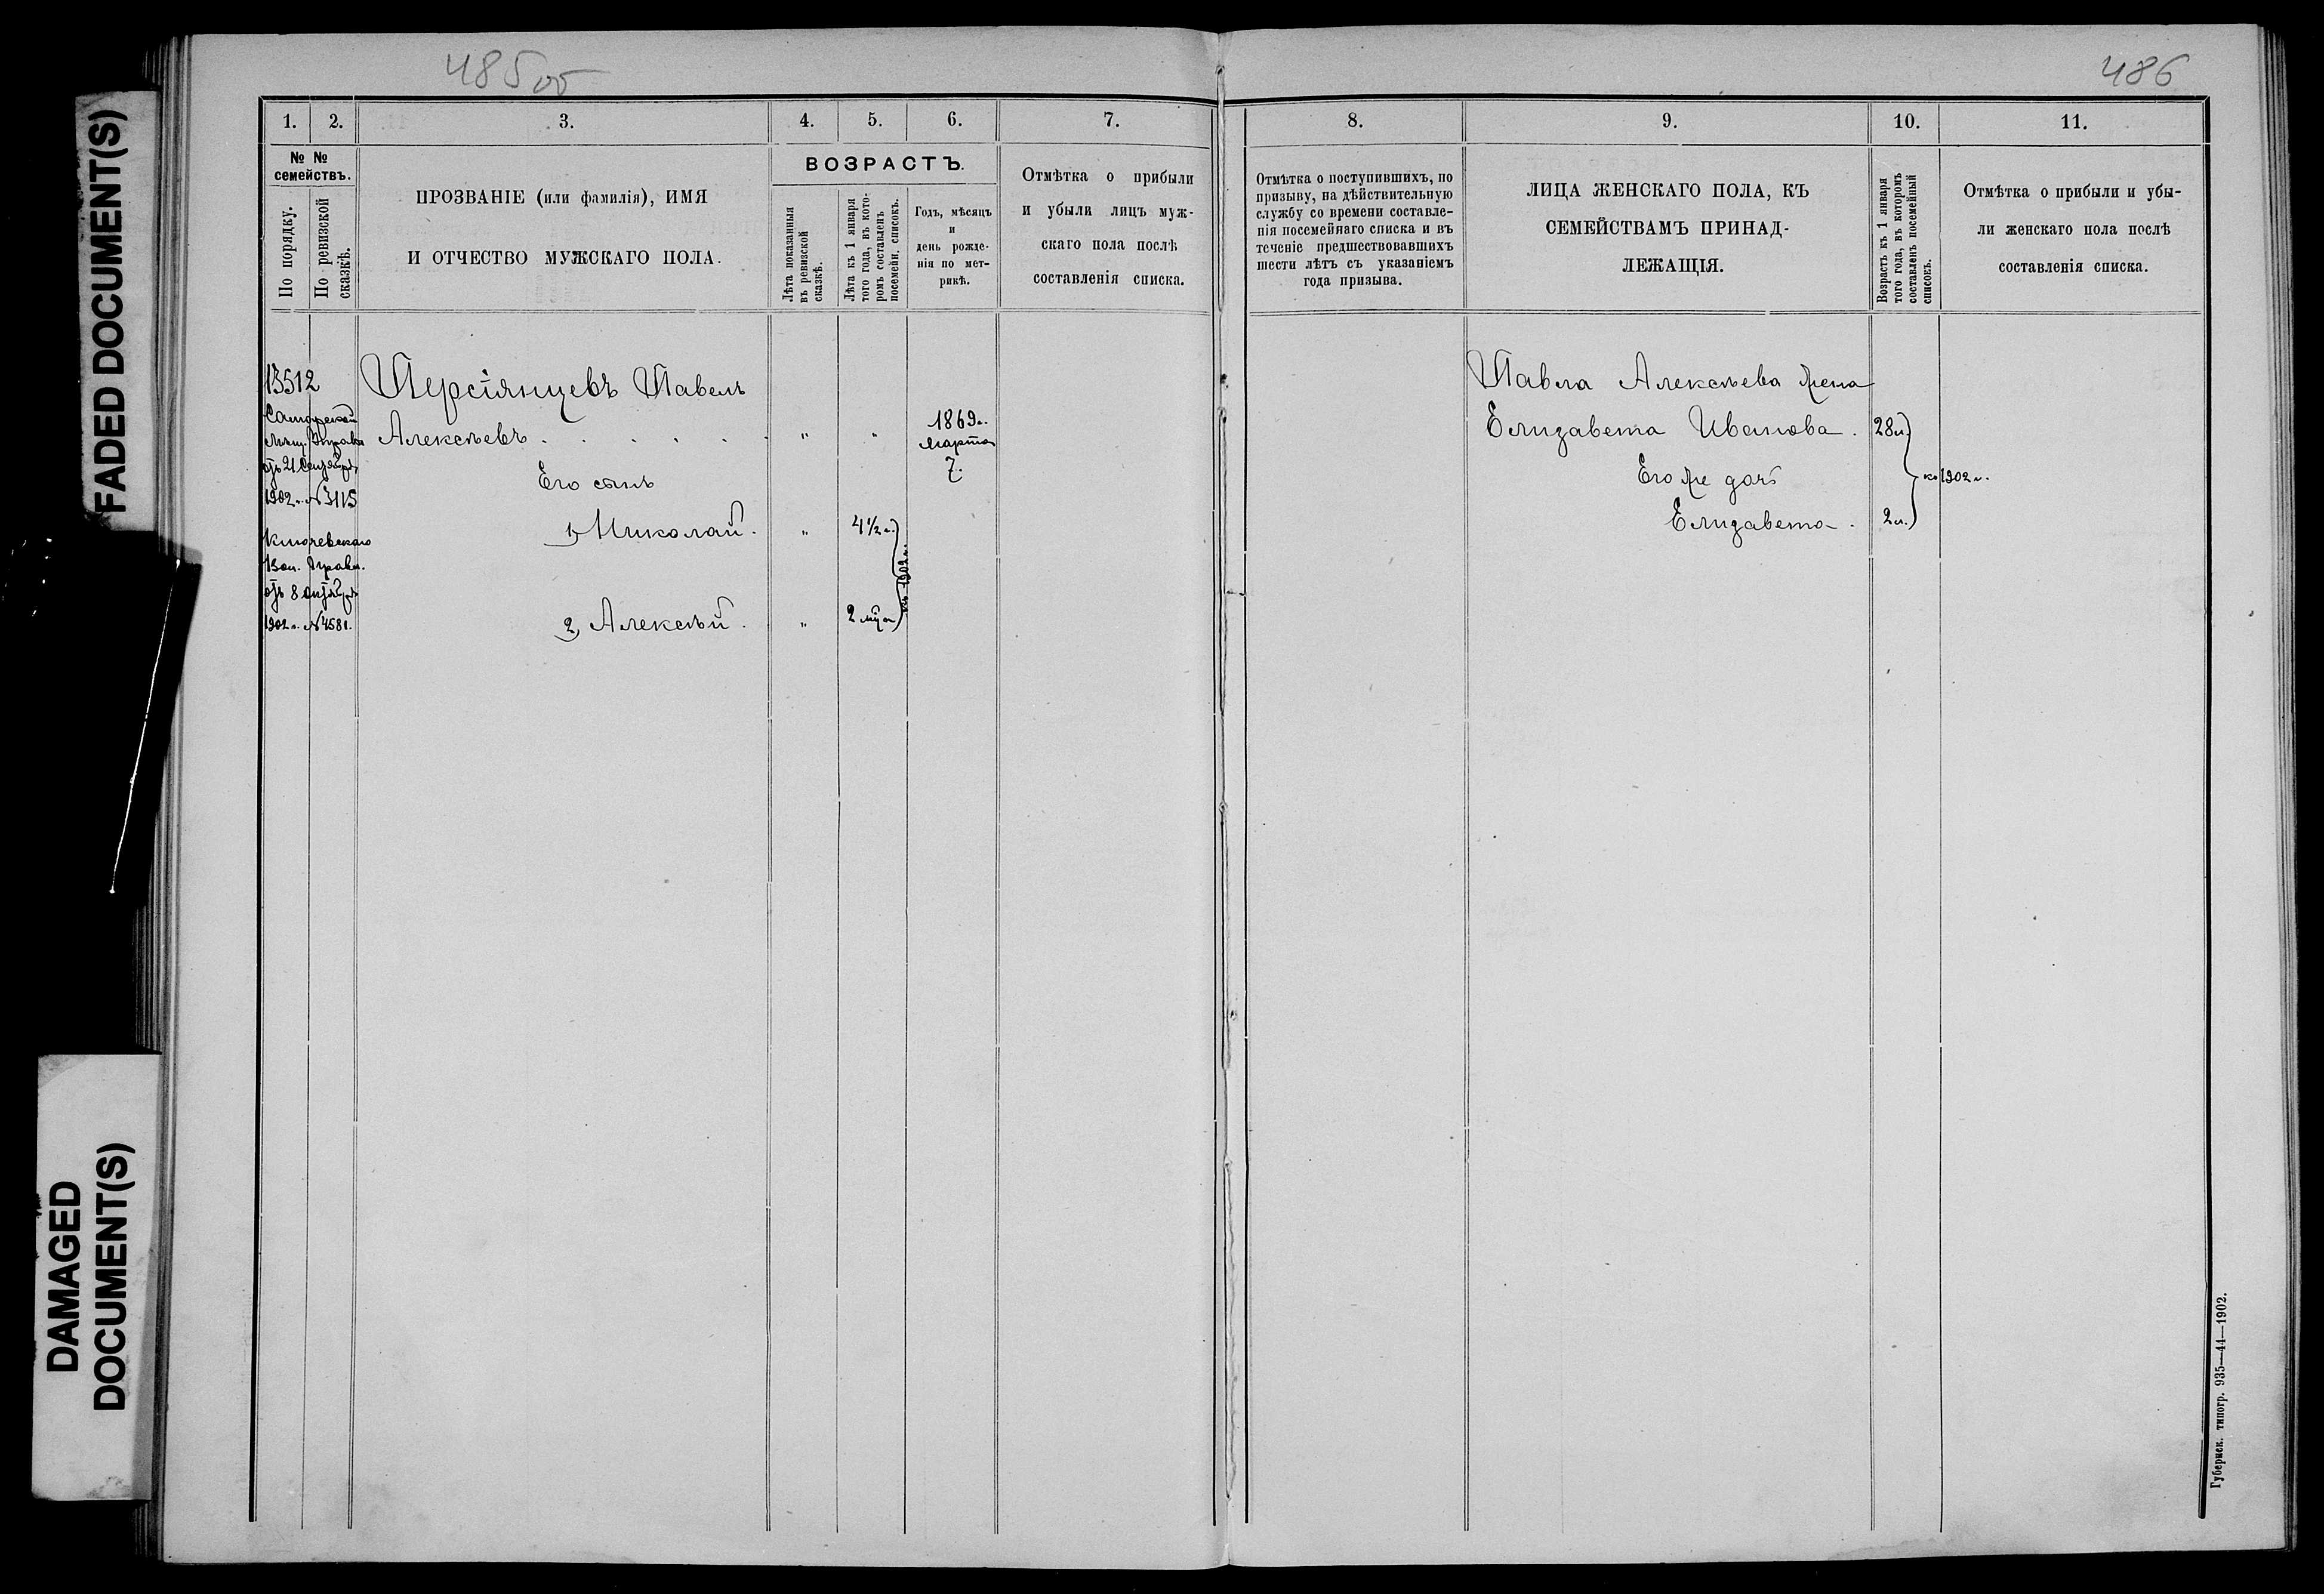 FADED DOCUMENT(S)
DAMAGED
DOCUMENT(S)
485 об
1. 2. 3. 4. 5. 6. 7.
№ №
семействъ.
По порядку.
По ревизской
сказкѣ.
ПРОЗВАНІЕ (или фамилія), ИМЯ
И ОТЧЕСТВО МУЖСКАГО ПОЛА.
ВОЗРАСТЪ.
Лѣта показанныя
въ ревизской
сказкѣ.
Лѣта къ 1 января
того года, въ кото-
ромъ составленъ
посемейн. списокъ.
Годъ, мѣсяцъ
и
день рожде-
нія по мет-
рикѣ.
Отмѣтка о прибыли
и убыли лицъ муж-
скаго пола послѣ
составленія списка.
13512
Самарской
Мѣщ. Управы
отъ 21 Сентября
1902 г. № 3115
Ключевскаго
Вол. Правл.
отъ 8 Октября
1902 г. № 4581.
Персіянцевъ Павелъ
Алексѣевъ . . . . . . " " 1869 г.
Марта
7.
Его сынъ
1, Николай. " 4 1/2 г.
2, Алексѣй. " 2 мца
къ 1902 г.
486
8. 9. 10. 11.
Отмѣтка о поступившихъ, по
призыву, на дѣйствительную
службу со времени составле-
нія посемейнаго списка и въ
теченіе предшествовавшихъ
шести лѣтъ съ указаніемъ
года призыва.
ЛИЦА ЖЕНСКАГО ПОЛА, КЪ
СЕМЕЙСТВАМЪ ПРИНАД-
ЛЕЖАЩІЯ.
Возрастъ къ 1 января
того года, въ которомъ
составленъ посемейный
списокъ.
Отмѣтка о прибыли и убы-
ли женскаго пола послѣ
составленія списка.
Павла Алексѣева жена
Елизавета Иванова. 28 л.
Его же дочь
Елизавета. 2 л.
къ 1902 г.
Губернск. типогр. 935—44—1902.